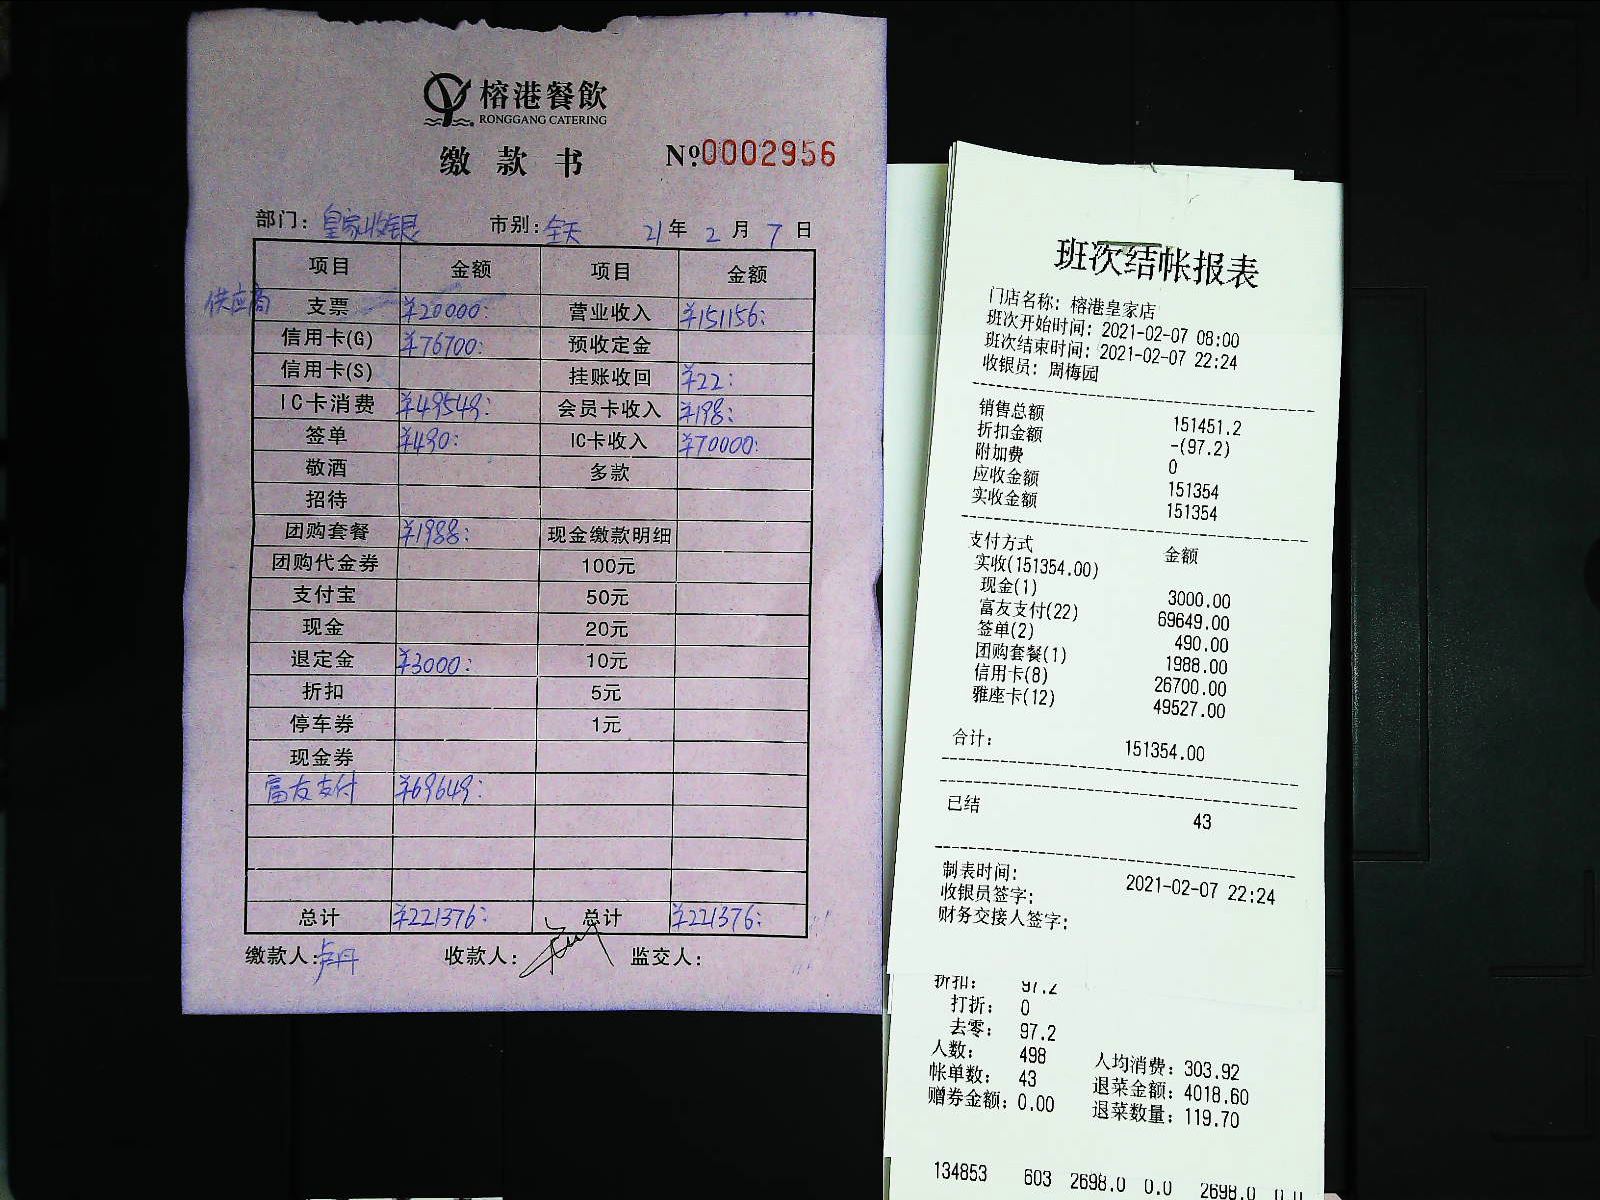 榕港餐飲
RONGGANG CATERING
缴款书 №0002956
部门: 皇家收银 市别: 全天 21年 2月 7日
项目 金额 项目 金额
供应商 支票 ¥20000: 营业收入 ¥151156:
信用卡(G) ¥76700: 预收定金
信用卡(S) 挂账收回 ¥22:
IC卡消费 ¥49549: 会员卡收入 ¥198:
签单 ¥490: IC卡收入 ¥70000:
敬酒 多款
招待
团购套餐 ¥1988: 现金缴款明细
团购代金券 100元
支付宝 50元
现金 20元
退定金 ¥3000: 10元
折扣 5元
停车券 1元
现金券
富友支付 ¥69649:
总计 ¥221376: 总计 ¥221376:
缴款人: 卢丹 收款人: 监交人:
班次结帐报表
门店名称: 榕港皇家店
班次开始时间: 2021-02-07 08:00
班次结束时间: 2021-02-07 22:24
收银员: 周梅园
销售总额 151451.2
折扣金额 -(97.2)
附加费 0
应收金额 151354
实收金额 151354
支付方式 金额
实收(151354.00)
现金(1) 3000.00
富友支付(22) 69649.00
签单(2) 490.00
团购套餐(1) 1988.00
信用卡(8) 26700.00
雅座卡(12) 49527.00
合计: 151354.00
已结 43
制表时间: 2021-02-07 22:24
收银员签字:
财务交接人签字:
折扣: 97.2
打折: 0
去零: 97.2
人数: 498 人均消费: 303.92
帐单数: 43 退菜金额: 4018.60
赠券金额: 0.00 退菜数量: 119.70
134853 603 2698.0 0.0 2698.0 0.0